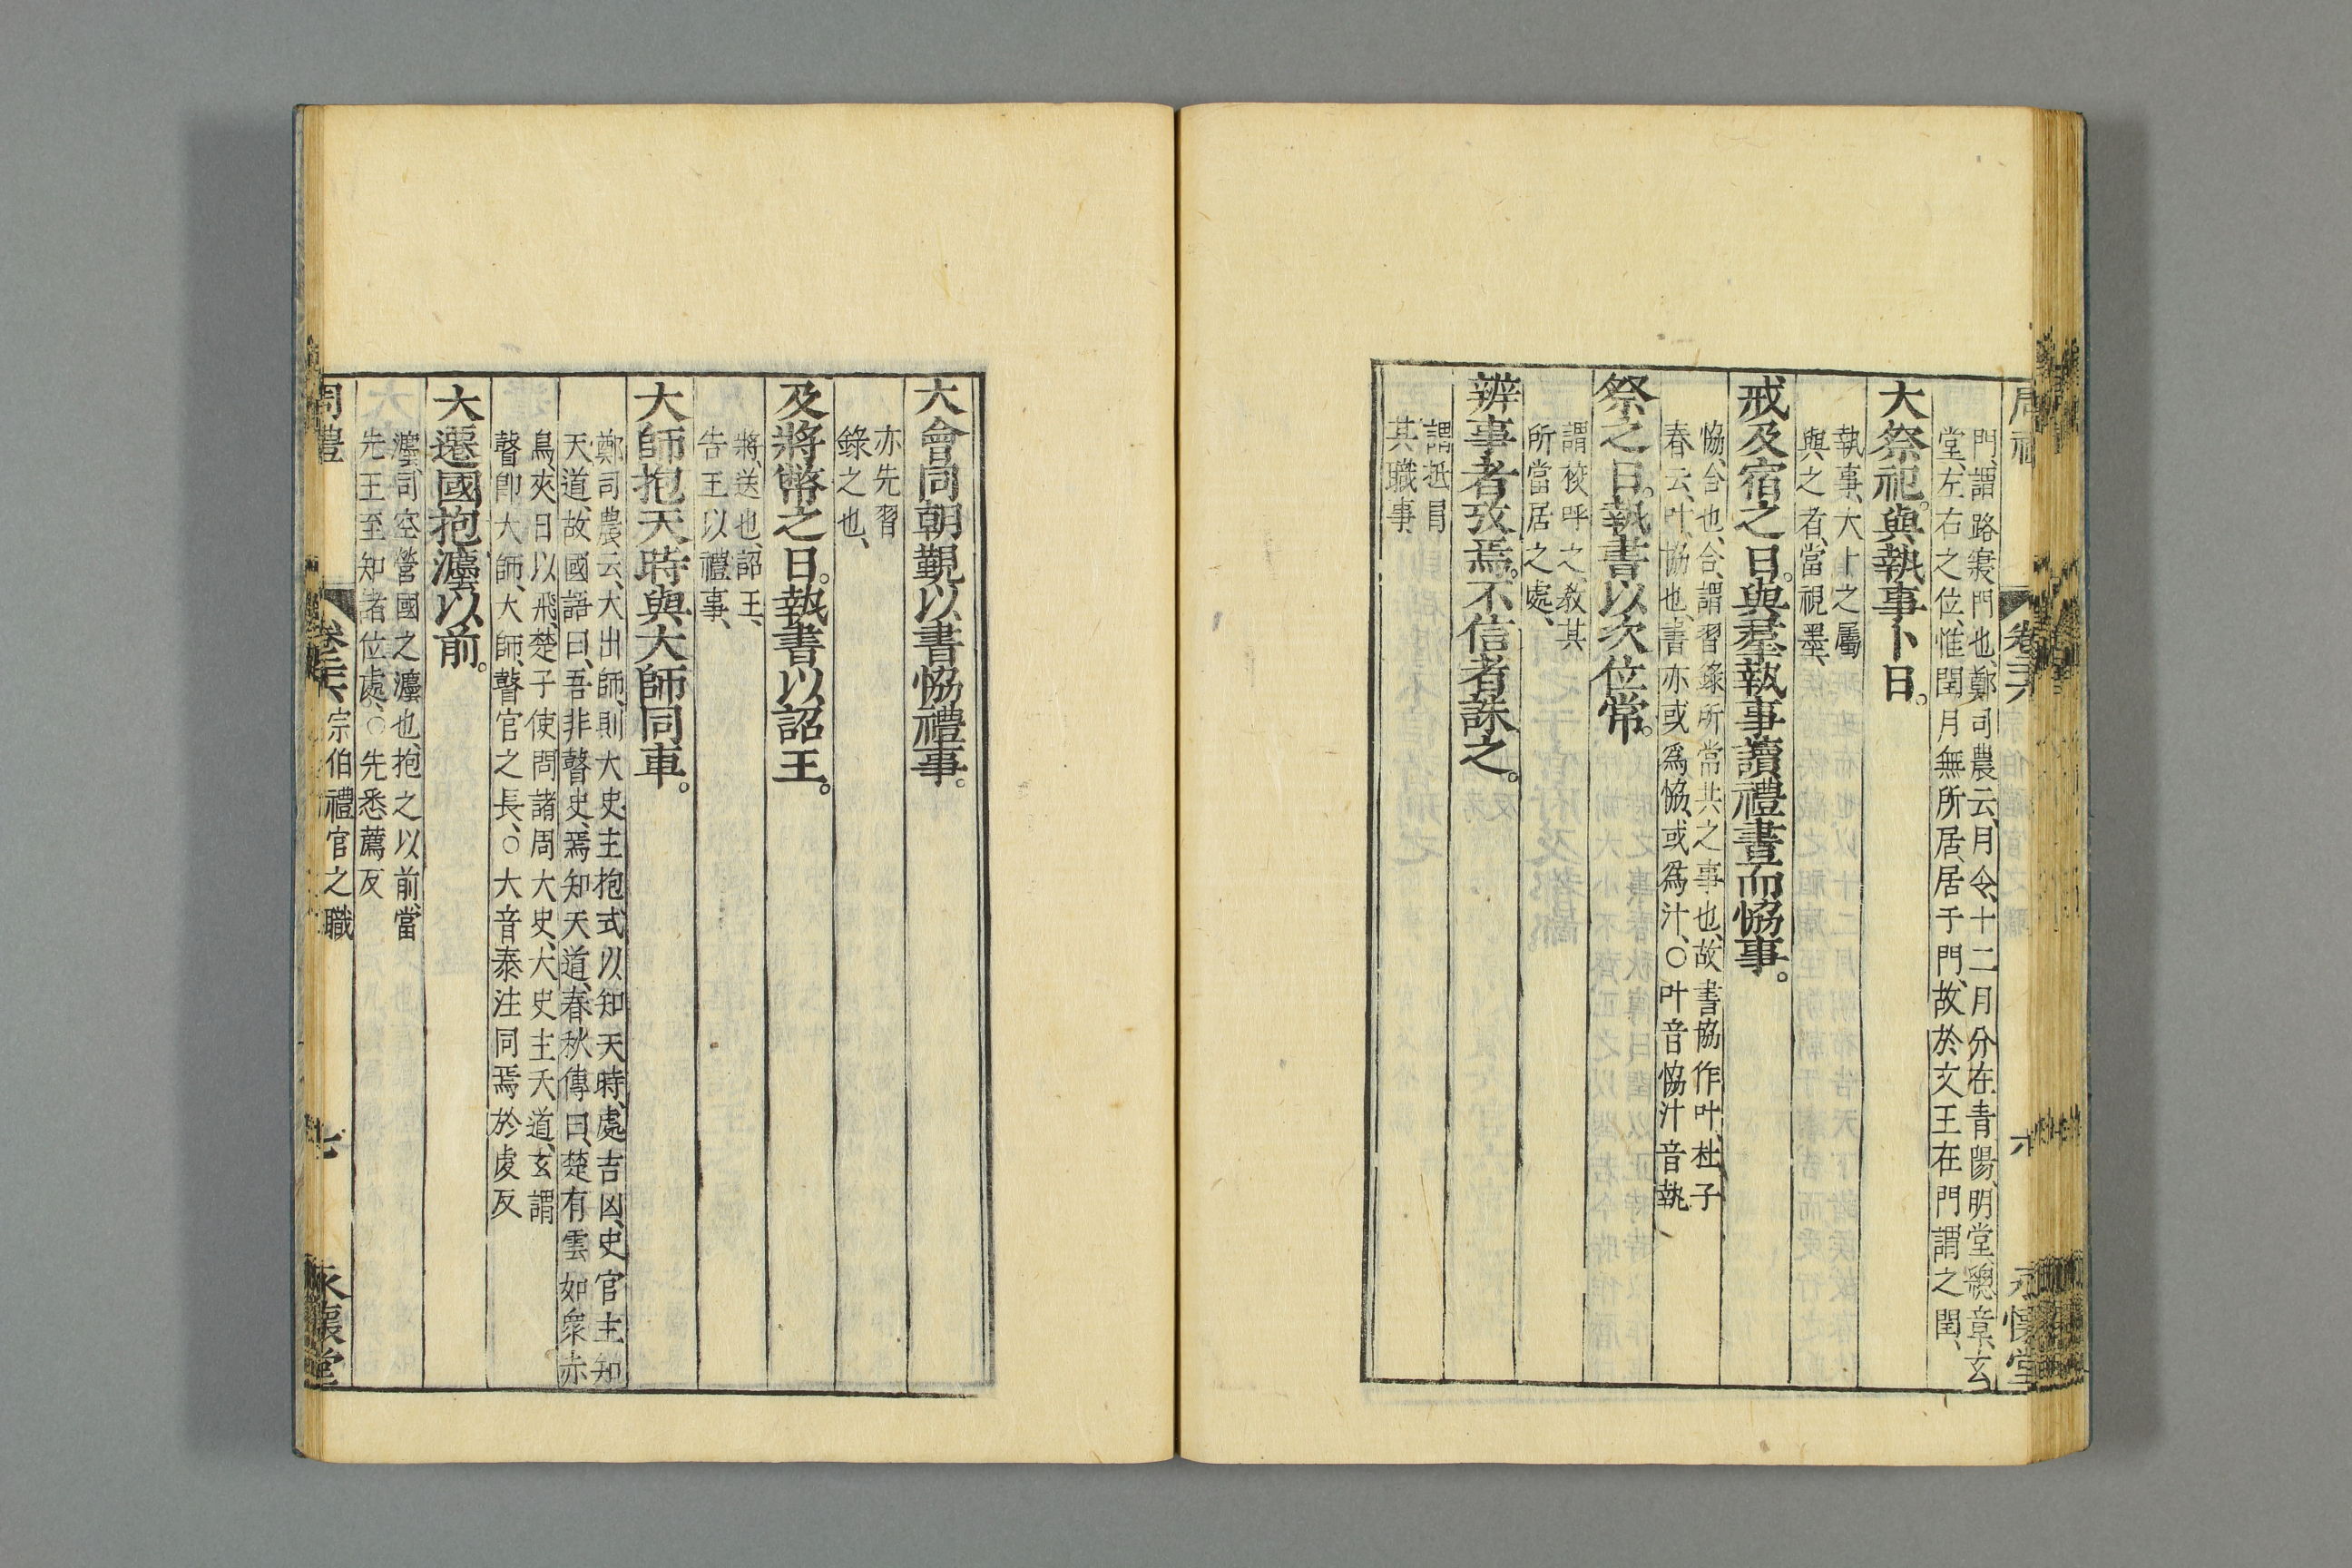 門、謂路寢門也、鄭司農云、月令、十二月分在青陽、明堂、總章、玄
堂、左右之位、惟閏月無所居、居于門、故於文王在門謂之閏、
大祭祀。與執事卜日。
執事、大卜之屬
與之者、當視墨、
戒及宿之日。與羣執事讀禮書而恊事。
恊、合也、合、謂習錄所當共之事也、故書協作叶、杜子
春云、叶、協也、書亦或爲恊、或爲汁、○叶音恊汁音執
祭之日。執書以次位常。
謂校呼之、敎其
所當居之處、
辨事者攷焉。不信者誅之。
謂抵冒
其職事
卷二十六
六
永懷堂
大會同朝覲以書恊禮事。
亦先習
錄之也、
及將幣之日。執書以詔王。
將、送也、詔王、
告王以禮事、
大師抱天時與大師同車。
鄭司農云、大出師、則大史主抱式以知天時、處吉凶、史官主知
天道、故國語曰、吾非瞽史、焉知天道、春秋傳曰、楚有雲如衆赤
鳥、夾日以飛、楚子使問諸周大史、大史主天道、玄謂
瞽卽大師、大師、瞽官之長、○大音泰注同焉於虔反
大遷國抱灋以前。
灋、司空營國之灋也、抱之以前、當
先王至知諸位處、○先悉薦反
周禮
卷二十六
宗伯禮官之職
七
永懷堂